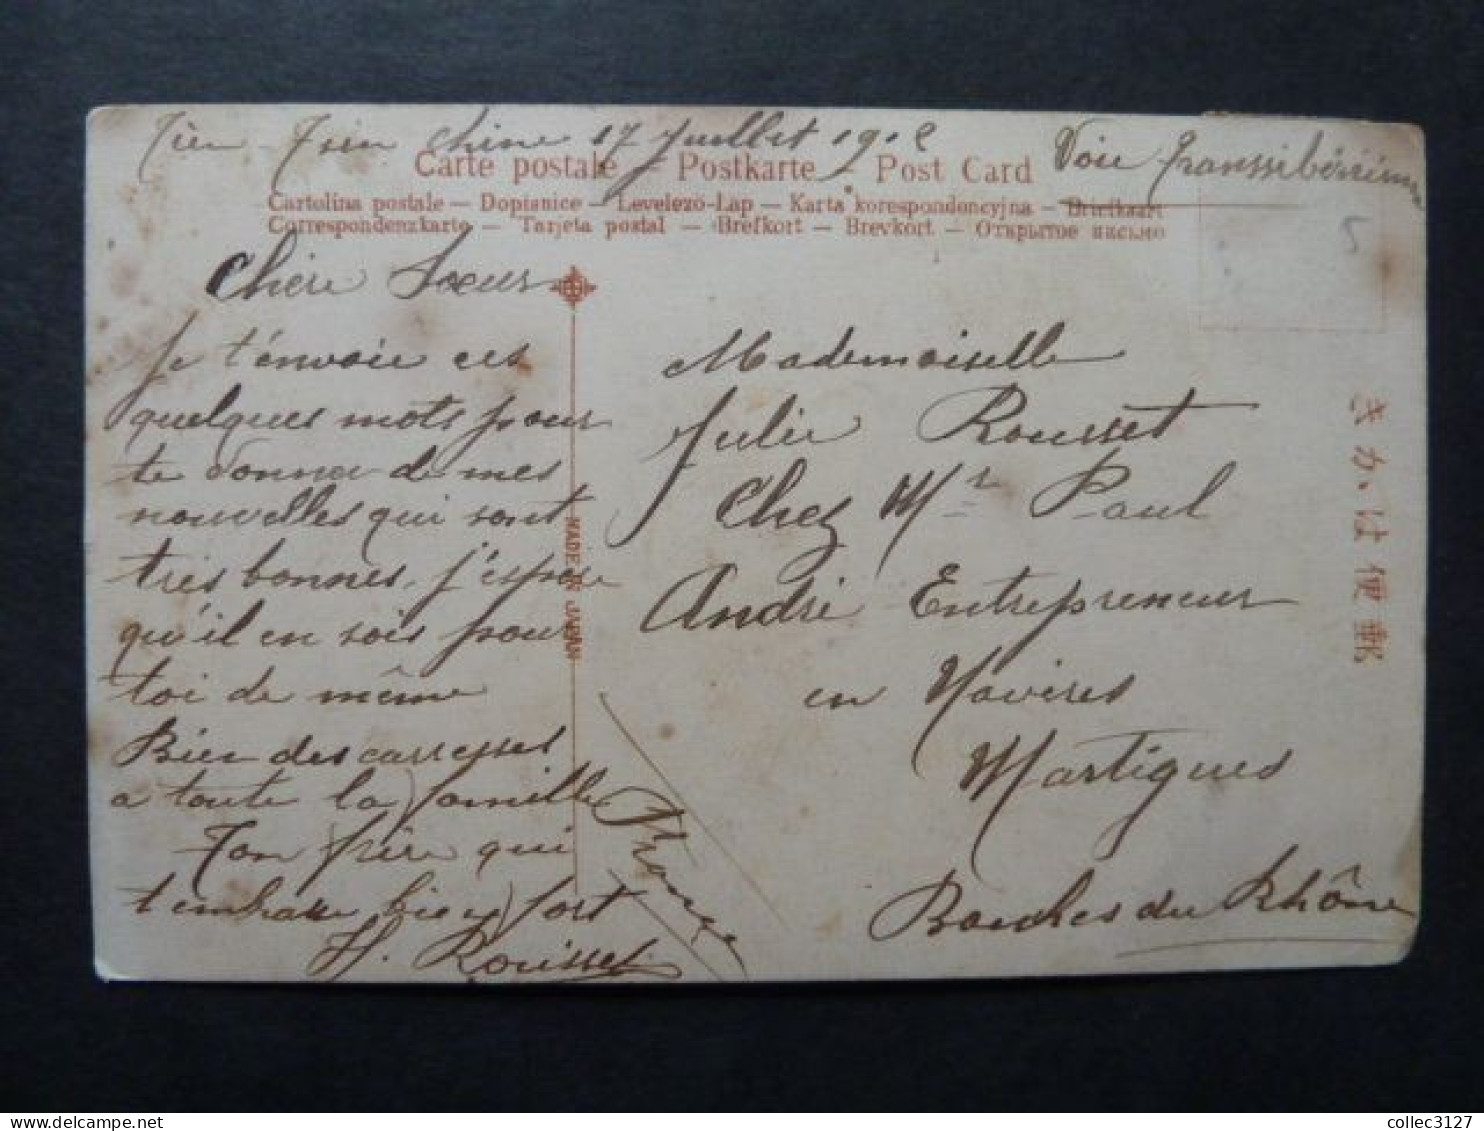 Tien-Tsin Chine 17 Juillet 1912
Voie Transsibérienne
Carte postale – Postkarte – Post Card
Cartolina postale – Dopisnice – Levelező-Lap – Karta korespondencyjna – Briefkaart
Correspondenzkarte – Tarjeta postal – Brefkort – Brevkort – Открытое письмо
5
Chère Sœur
Je t'envoie ces
quelques mots pour
te donner de mes
nouvelles qui sont
très bonnes, j'espère
qu'il en sois pour
toi de même
Bien des carresses
a toute la famille
Ton frère qui
t'embrasse bien fort
H. Rousset
MADE IN JAPAN
Mademoiselle
Julie Rousset
Chez Mr Paul
André Entrepreneur
en
Martigues
Bouches du Rhône
France
郵便はかき
collec3127